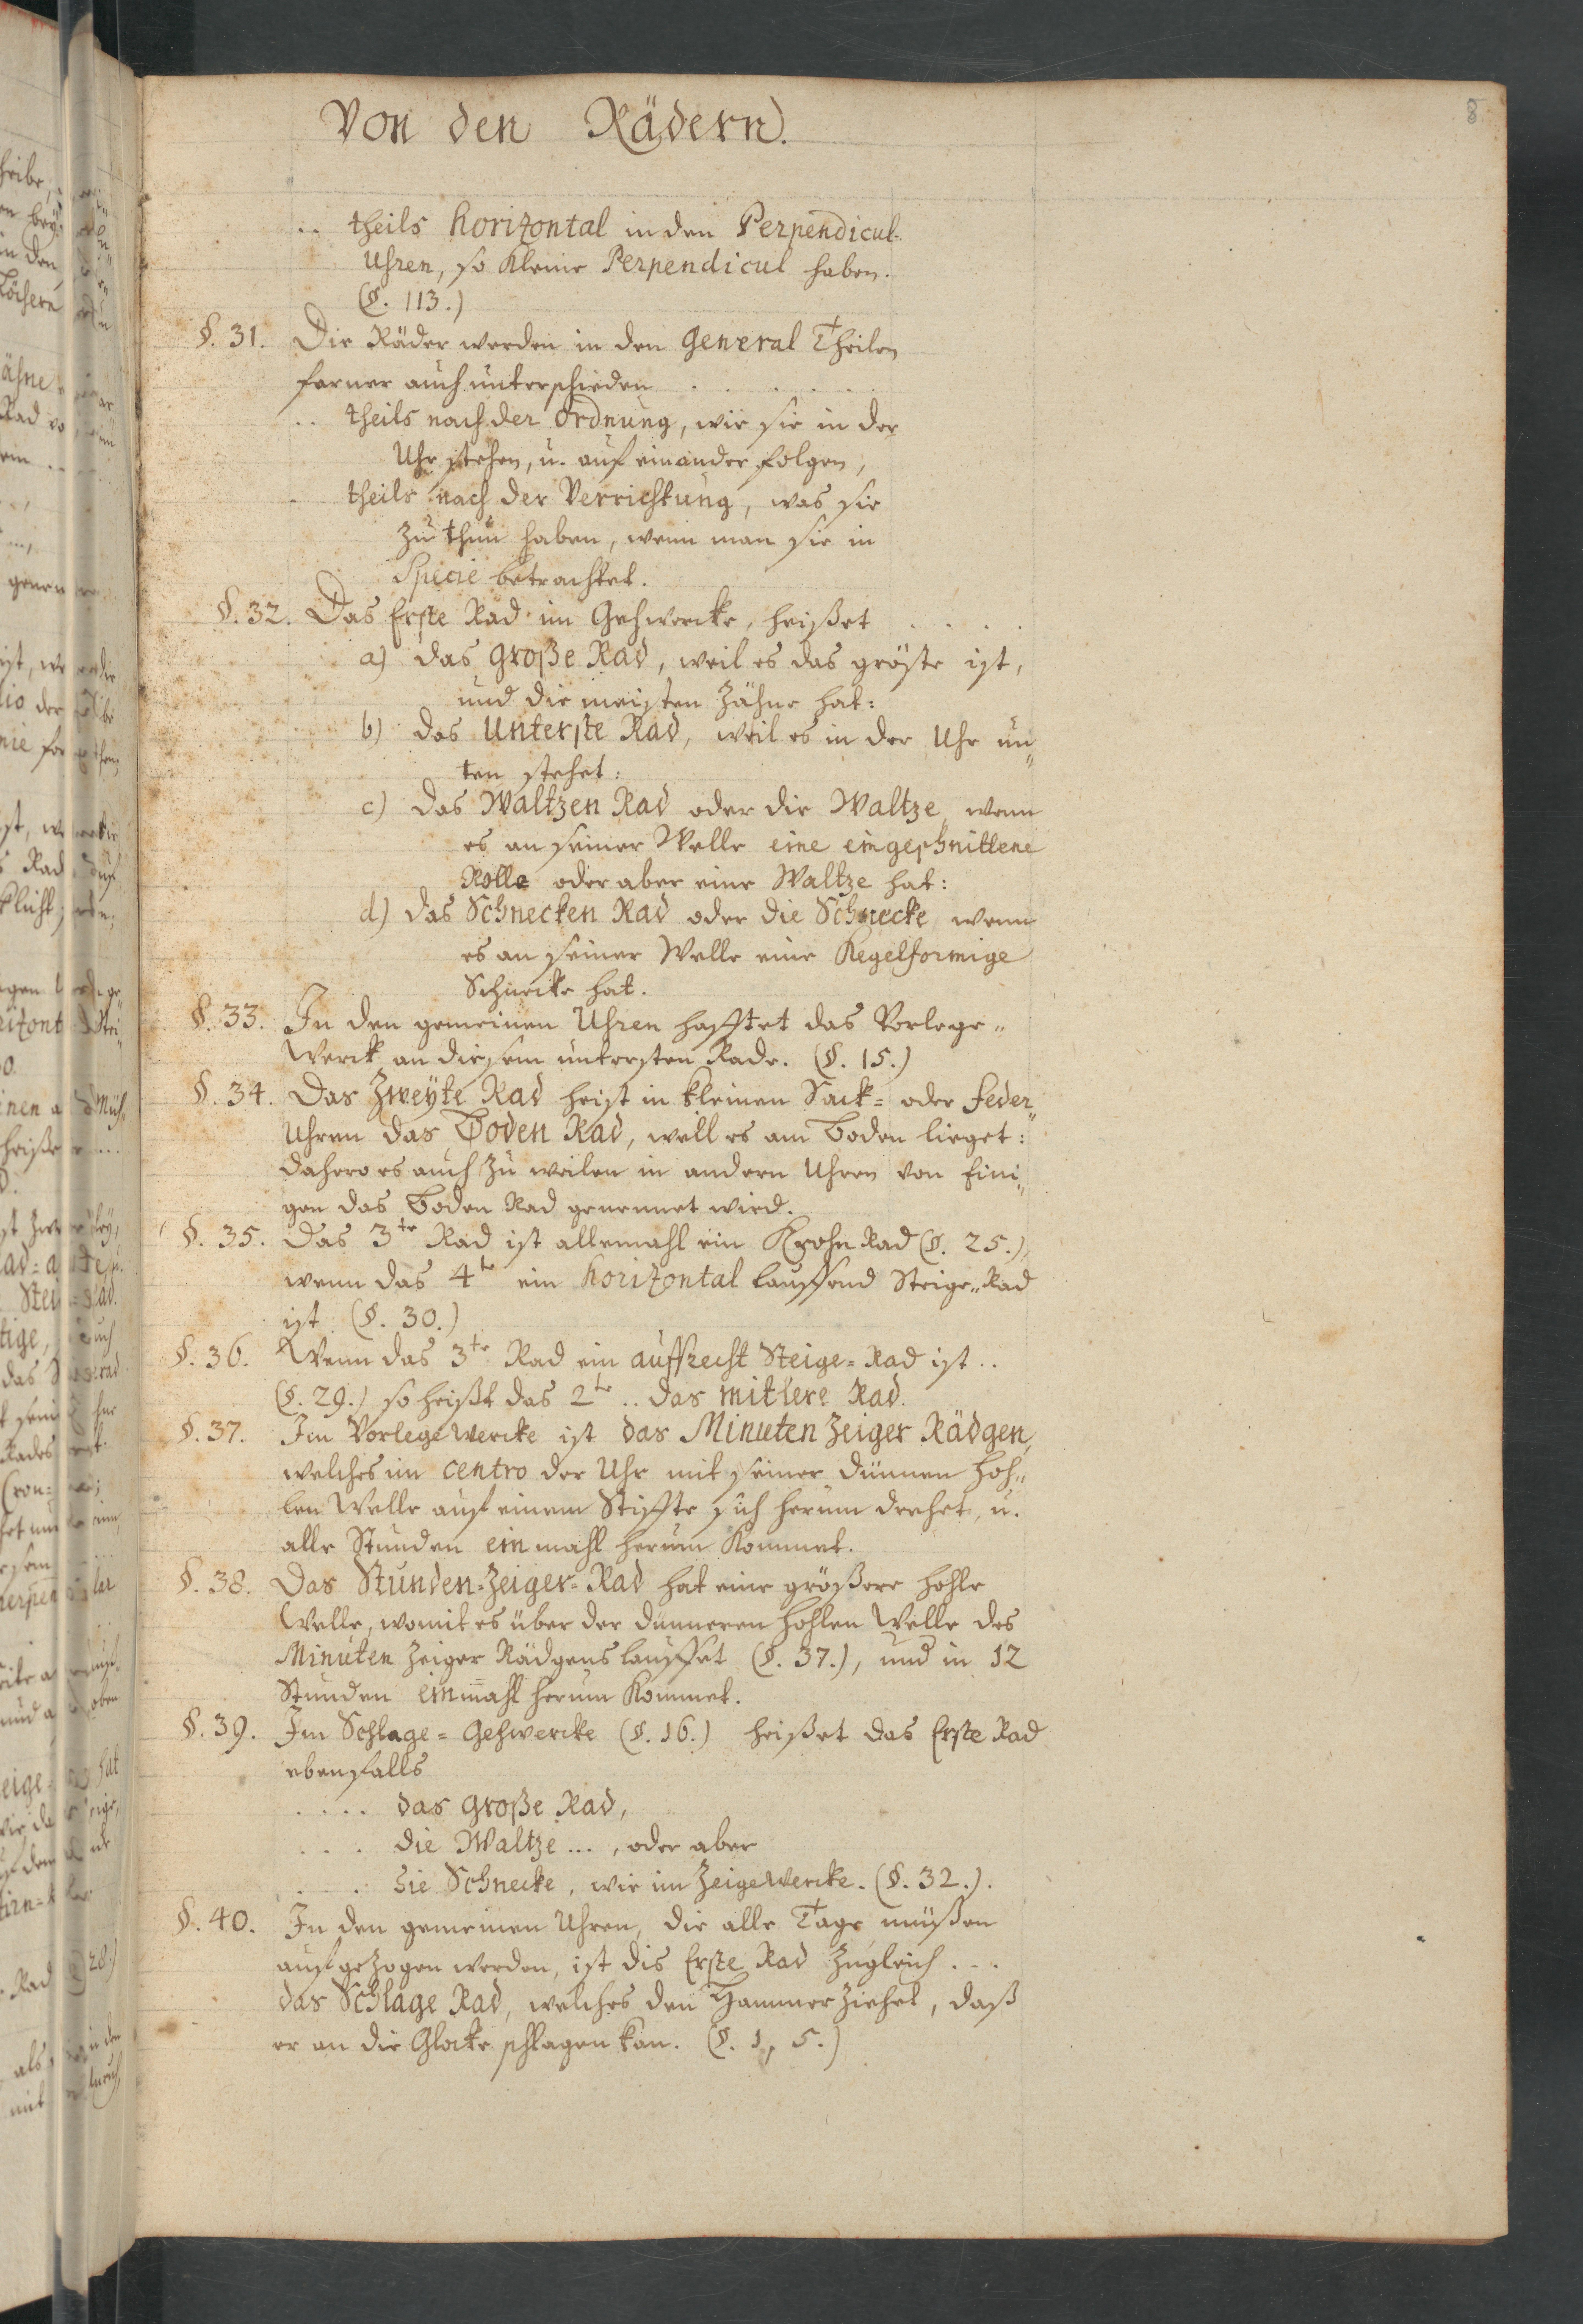 8
Von den Rädern.
.. theils horizontal in den Perpendicul-
Uhren, so kleine Perpendicul haben.
(§. 113.)
§. 31. Die Räder werden in den General Theilen
ferner auch unterschieden . . . . . .
.. theils nach der Ordnung, wie sie in der
Uhr stehen, u. auf einander folgen,
. theils nach der Verrichtung, was sie
zu thun haben, wenn man sie in
Specie betrachtet.
§. 32. Das Erste Rad im Gehwercke, heißet . . . .
a) das Große Rad, weil es das gröste ist,
und die meisten Zähne hat:
b) das Unterste Rad, weil es in der Uhr un„
ten stehet:
c) das Waltzen Rad oder die Waltze, wenn
es an seiner Welle eine eingeschnittene
Rolle oder aber eine Waltze hat:
d) das Schnecken Rad oder die Schnecke, wenn
es an seiner Welle eine Kegelformige
Schnecke hat.
§. 33. In den gemeinen Uhren hafftet das Vorlege„
Werck an diesem untersten Rade. (§. 15.)
§. 34. Das Zweyte Rad heist in kleinen Sack= oder Feder„
Uhren das Boden Rad, weil es am Boden lieget:
dahero es auch zu weilen in andern Uhren von Eini„
gen das Boden Rad genennet wird.
§. 35. Das 3te Rad ist allemahl ein Krohn Rad (§. 25.),
wenn das 4te ein horizontal lauffend Steige„Rad
ist (§. 30.)
§. 36. Wenn das 3te Rad ein auffrecht Steige=Rad ist ..
(§. 29.) so heißt das 2te .. das mitlere Rad.
§. 37. Im Vorlege Wercke ist das Minuten Zeiger Rädgen,
welches im Centro der Uhr mit seiner dünnen hoh„
len Welle auf einem Stiffte sich herum drehet, u.
alle Stunden ein mahl herum kommet.
§. 38. Das Stunden=Zeiger=Rad hat eine größere hohle
Welle, womit es über der dünneren hohlen Welle des
Minuten Zeiger Rädgens lauffet (§. 37.), und in 12
Stunden einmahl herum kommet.
§. 39. Im Schlage=Gehwercke (§. 16.) heißet das Erste Rad
ebenfalls
.... das Große Rad,
... die Waltze ..., oder aber
... die Schnecke, wie im Zeigewercke. (§. 32.).
§. 40. In den gemeinen Uhren, die alle Tage müßen
auf gezogen werden, ist dis Erste Rad zugleich ...
das Schlage Rad, welches den Hammer ziehet, daß
er an die Glocke schlagen kan. (§. 1, 5.)